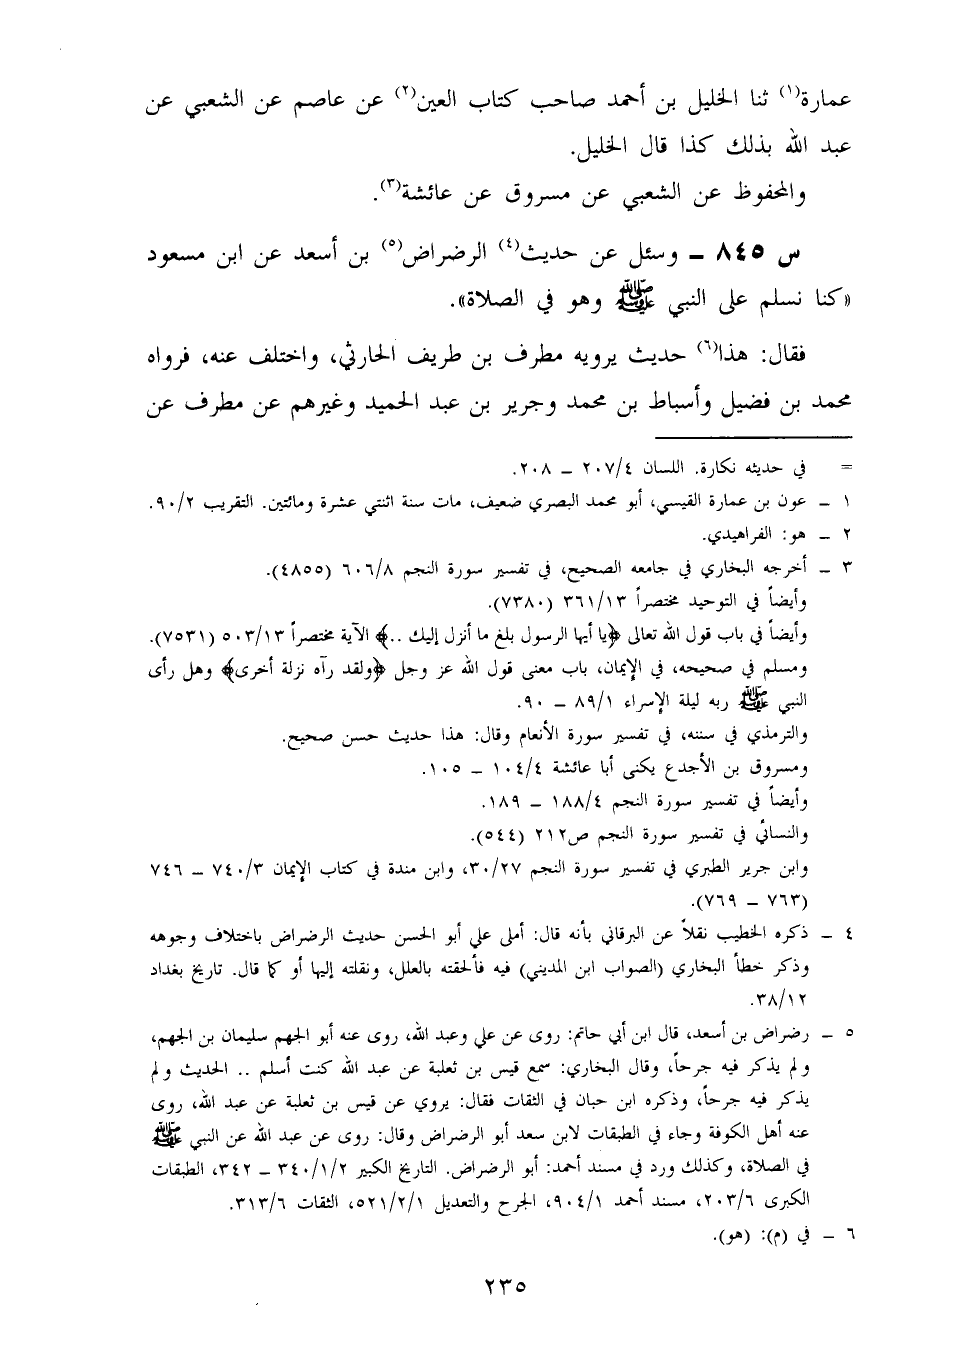 عمارة(١) ثنا الخليل بن أحمد صاحب كتاب العين(٢) عن عاصم عن الشعبي عن
عبد الله بذلك كذا قال الخليل.
والمحفوظ عن الشعبي عن مسروق عن عائشة(٣).
س ٨٤٥ ــ وسئل عن حديث(٤) الرضراض(٥) بن أسعد عن ابن مسعود
«كنا نسلم على النبي ﷺ وهو في الصلاة».
فقال: هذا(٦) حديث يرويه مطرف بن طريف الحارثي، واختلف عنه، فرواه
محمد بن فضيل وأسباط بن محمد وجرير بن عبد الحميد وغيرهم عن مطرف عن
= في حديثه نكارة. اللسان ٢٠٧/٤ ــ ٢٠٨.
١ ــ عون بن عمارة القيسي، أبو محمد البصري ضعيف، مات سنة اثنتي عشرة ومائتين. التقريب ٩٠/٢.
٢ ــ هو: الفراهيدي.
٣ ــ أخرجه البخاري في جامعه الصحيح، في تفسير سورة النجم ٦٠٦/٨ (٤٨٥٥).
وأيضاً في التوحيد مختصراً ٣٦١/١٣ (٧٣٨٠).
وأيضاً في باب قول الله تعالى ﴿يا أيها الرسول بلغ ما أنزل إليك ..﴾ الآية مختصراً ٥٠٣/١٣ (٧٥٣١).
ومسلم في صحيحه، في الإيمان، باب معنى قول الله عز وجل ﴿ولقد رآه نزلة أخرى﴾ وهل رأى
النبي ﷺ ربه ليلة الإسراء ٨٩/١ ــ ٩٠.
والترمذي في سننه، في تفسير سورة الأنعام وقال: هذا حديث حسن صحيح.
ومسروق بن الأجدع يكنى أبا عائشة ١٠٤/٤ ــ ١٠٥.
وأيضاً في تفسير سورة النجم ١٨٨/٤ ــ ١٨٩.
والنسائي في تفسير سورة النجم ص٢١٢ (٥٤٤).
وابن جرير الطبري في تفسير سورة النجم ٣٠/٢٧، وابن مندة في كتاب الإيمان ٧٤٠/٣ ــ ٧٤٦
(٧٦٣ ــ ٧٦٩).
٤ ــ ذكره الخطيب نقلاً عن البرقاني بأنه قال: أملى علي أبو الحسن حديث الرضراض باختلاف وجوهه
وذكر خطأ البخاري (الصواب ابن المديني) فيه فألحقته بالعلل، ونقلته إليها أو كما قال. تاريخ بغداد
٣٨/١٢.
٥ ــ رضراض بن أسعد، قال ابن أبي حاتم: روى عن علي وعبد الله، روى عنه أبو الجهم سليمان بن الجهم،
ولم يذكر فيه جرحاً، وقال البخاري: سمع قيس بن ثعلبة عن عبد الله كنت أسلم .. الحديث ولم
يذكر فيه جرحاً، وذكره ابن حبان في الثقات فقال: يروي عن قيس بن ثعلبة عن عبد الله، روى
عنه أهل الكوفة وجاء في الطبقات لابن سعد أبو الرضراض وقال: روى عن عبد الله عن النبي ﷺ
في الصلاة، وكذلك ورد في مسند أحمد: أبو الرضراض. التاريخ الكبير ٣٤٠/١/٢ ــ ٣٤٢، الطبقات
الكبرى ٢٠٣/٦، مسند أحمد ٩٠٤/١، الجرح والتعديل ٥٢١/٢/١، الثقات ٣١٣/٦.
٦ ــ في (م): (هو).
٢٣٥